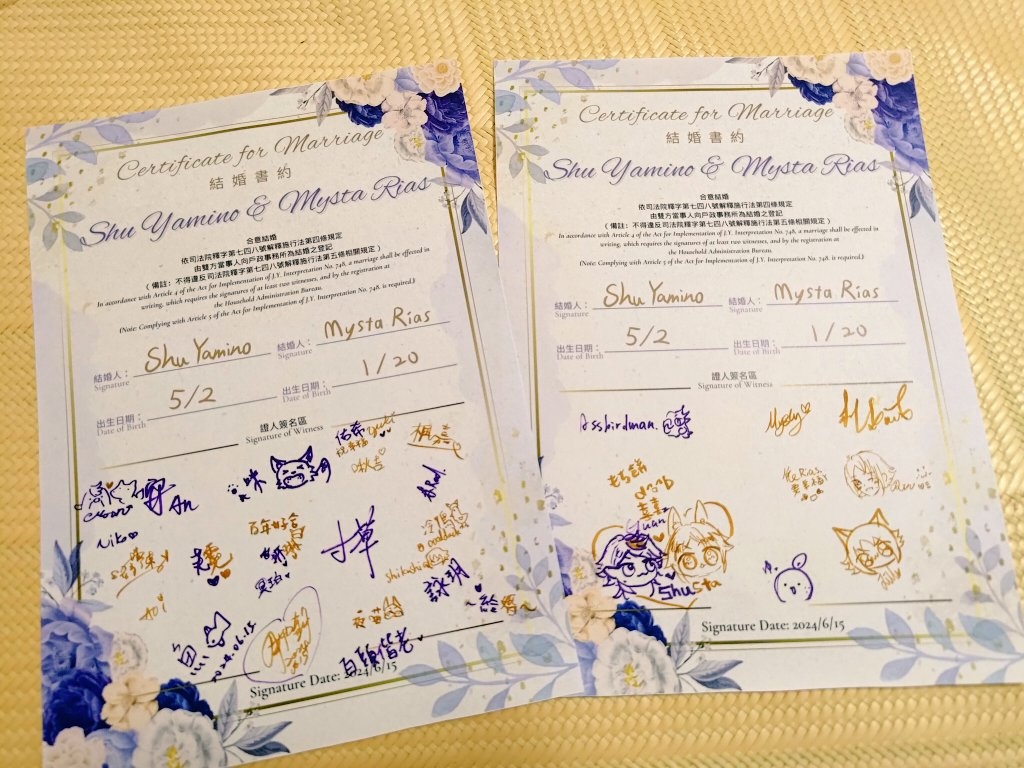 Certificate for Marriage
結婚書約
Shu Yamino & Mysta Rias
合意結婚
依司法院釋字第七四八號解釋施行法第四條規定
由雙方當事人向戶政事務所為結婚之登記
（備註：不得違反司法院釋字第七四八號解釋施行法第五條相關規定）
In accordance with Article 4 of the Act for Implementation of J.Y. Interpretation No. 748, a marriage shall be effected in
writing, which requires the signatures of at least two witnesses, and by the registration at
the Household Administration Bureau.
(Note: Complying with Article 5 of the Act for Implementation of J.Y. Interpretation No. 748. is required.)
結婚人： Shu Yamino 結婚人： Mysta Rias
Signature Signature
出生日期： 5/2 出生日期： 1/20
Date of Birth Date of Birth
證人簽名區
Signature of Witness
佑希
yuki
祝幸福
秋吉
咪
An
Niko
百年好合
草
冥珀
Shikashi
詠玥
2024.06.15.
白頭偕老
Signature Date: 2024/6/15
Certificate for Marriage
結婚書約
Shu Yamino & Mysta Rias
合意結婚
依司法院釋字第七四八號解釋施行法第四條規定
由雙方當事人向戶政事務所為結婚之登記
（備註：不得違反司法院釋字第七四八號解釋施行法第五條相關規定）
In accordance with Article 4 of the Act for Implementation of J.Y. Interpretation No. 748, a marriage shall be effected in
writing, which requires the signatures of at least two witnesses, and by the registration at
the Household Administration Bureau.
(Note: Complying with Article 5 of the Act for Implementation of J.Y. Interpretation No. 748. is required.)
結婚人： Shu Yamino 結婚人： Mysta Rias
Signature Signature
出生日期： 5/2 出生日期： 1/20
Date of Birth Date of Birth
證人簽名區
Signature of Witness
Assbirdman.
Yuan
Shusta
Signature Date: 2024/6/15